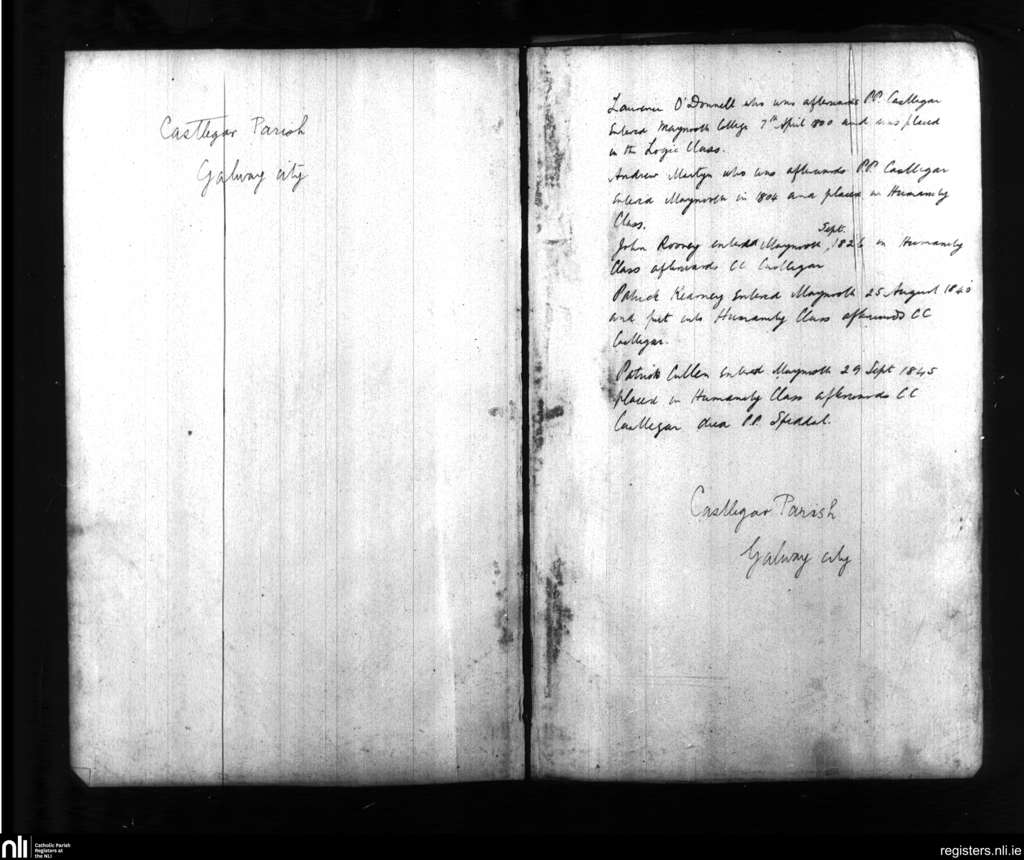 Castlegar Parish
Galway city
Laurence O'Donnell who was afterwards P.P. Castlegar
entered Maynooth College 7th April 1800 and was placed
in the Logic Class.
Andrew Martyn who was afterwards P.P. Castlegar
entered Maynooth in 1804 and placed in Humanity
Class.
Sept.
John Rooney entered Maynooth, 1826 in Humanity
Class afterwards CC Castlegar
Patrick Kearney entered Maynooth 25 August 1840
and put into Humanity Class afterwards CC
Castlegar.
Patrick Cullen entered Maynooth 29 Sept 1845
placed in Humanity Class afterwards CC
Castlegar died P.P. Spiddal.
Castlegar Parish
Galway city
nli
Catholic Parish
Registers at
the NLI
registers.nli.ie